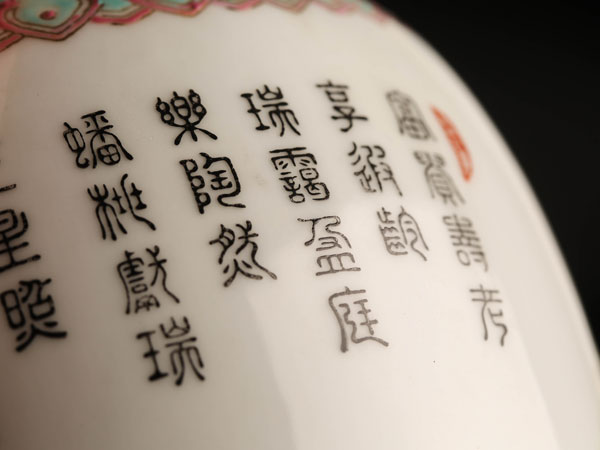 富貴壽考
享遐齡
瑞靄盈庭
樂陶然
蟠桃獻瑞
星照